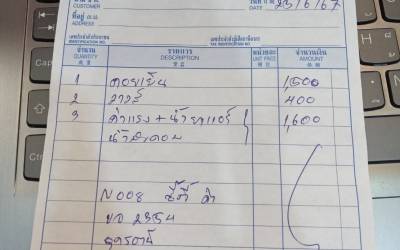 CUSTOMER
วันที่ DATE 25/6/67
ที่อยู่
ADDRESS
เลขประจำตัวประชาชน เลขประจำตัวผู้เสียภาษีอากร
IDENTIFICATION NO. TAX IDENTIFICATION NO.
จำนวน รายการ หน่วยละ จำนวนเงิน
QUANTITY DESCRIPTION UNIT PRICE AMOUNT
1 คอยเย็น 1,500
2 วาวล์ 400
3 ค่าแรง + น้ำยาแอร์ 1,600
น้ำ
N008 ซิตี้ ดำ
2354
อุดรธานี